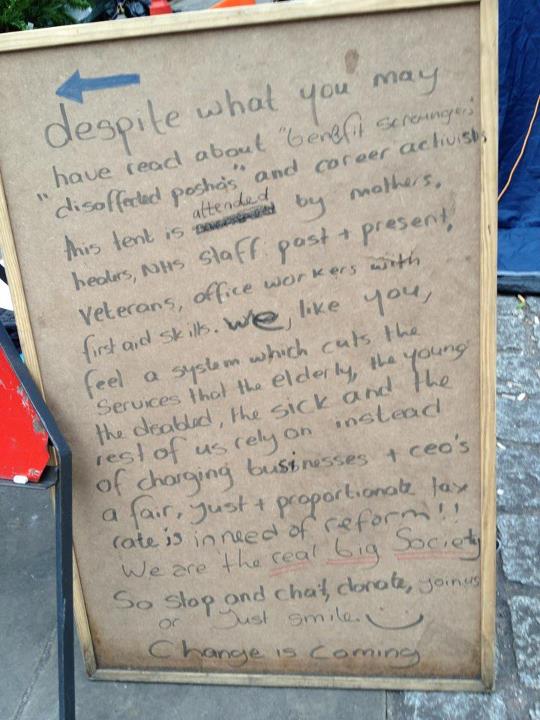 despite what you may
have read about "benefit scroungers"
"disaffected posho's" and career activists
this tent is attended by mothers,
healers, NHS staff past + present,
veterans, office workers with
first aid skills. we, like you,
feel a system which cuts the
services that the elderly, the young
the disabled, the sick and the
rest of us rely on instead
of charging businesses + ceo's
a fair, just + proportionate tax
rate is in need of reform!!
We are the real big Society
So stop and chat, donate, join us
or just smile.
Change is Coming